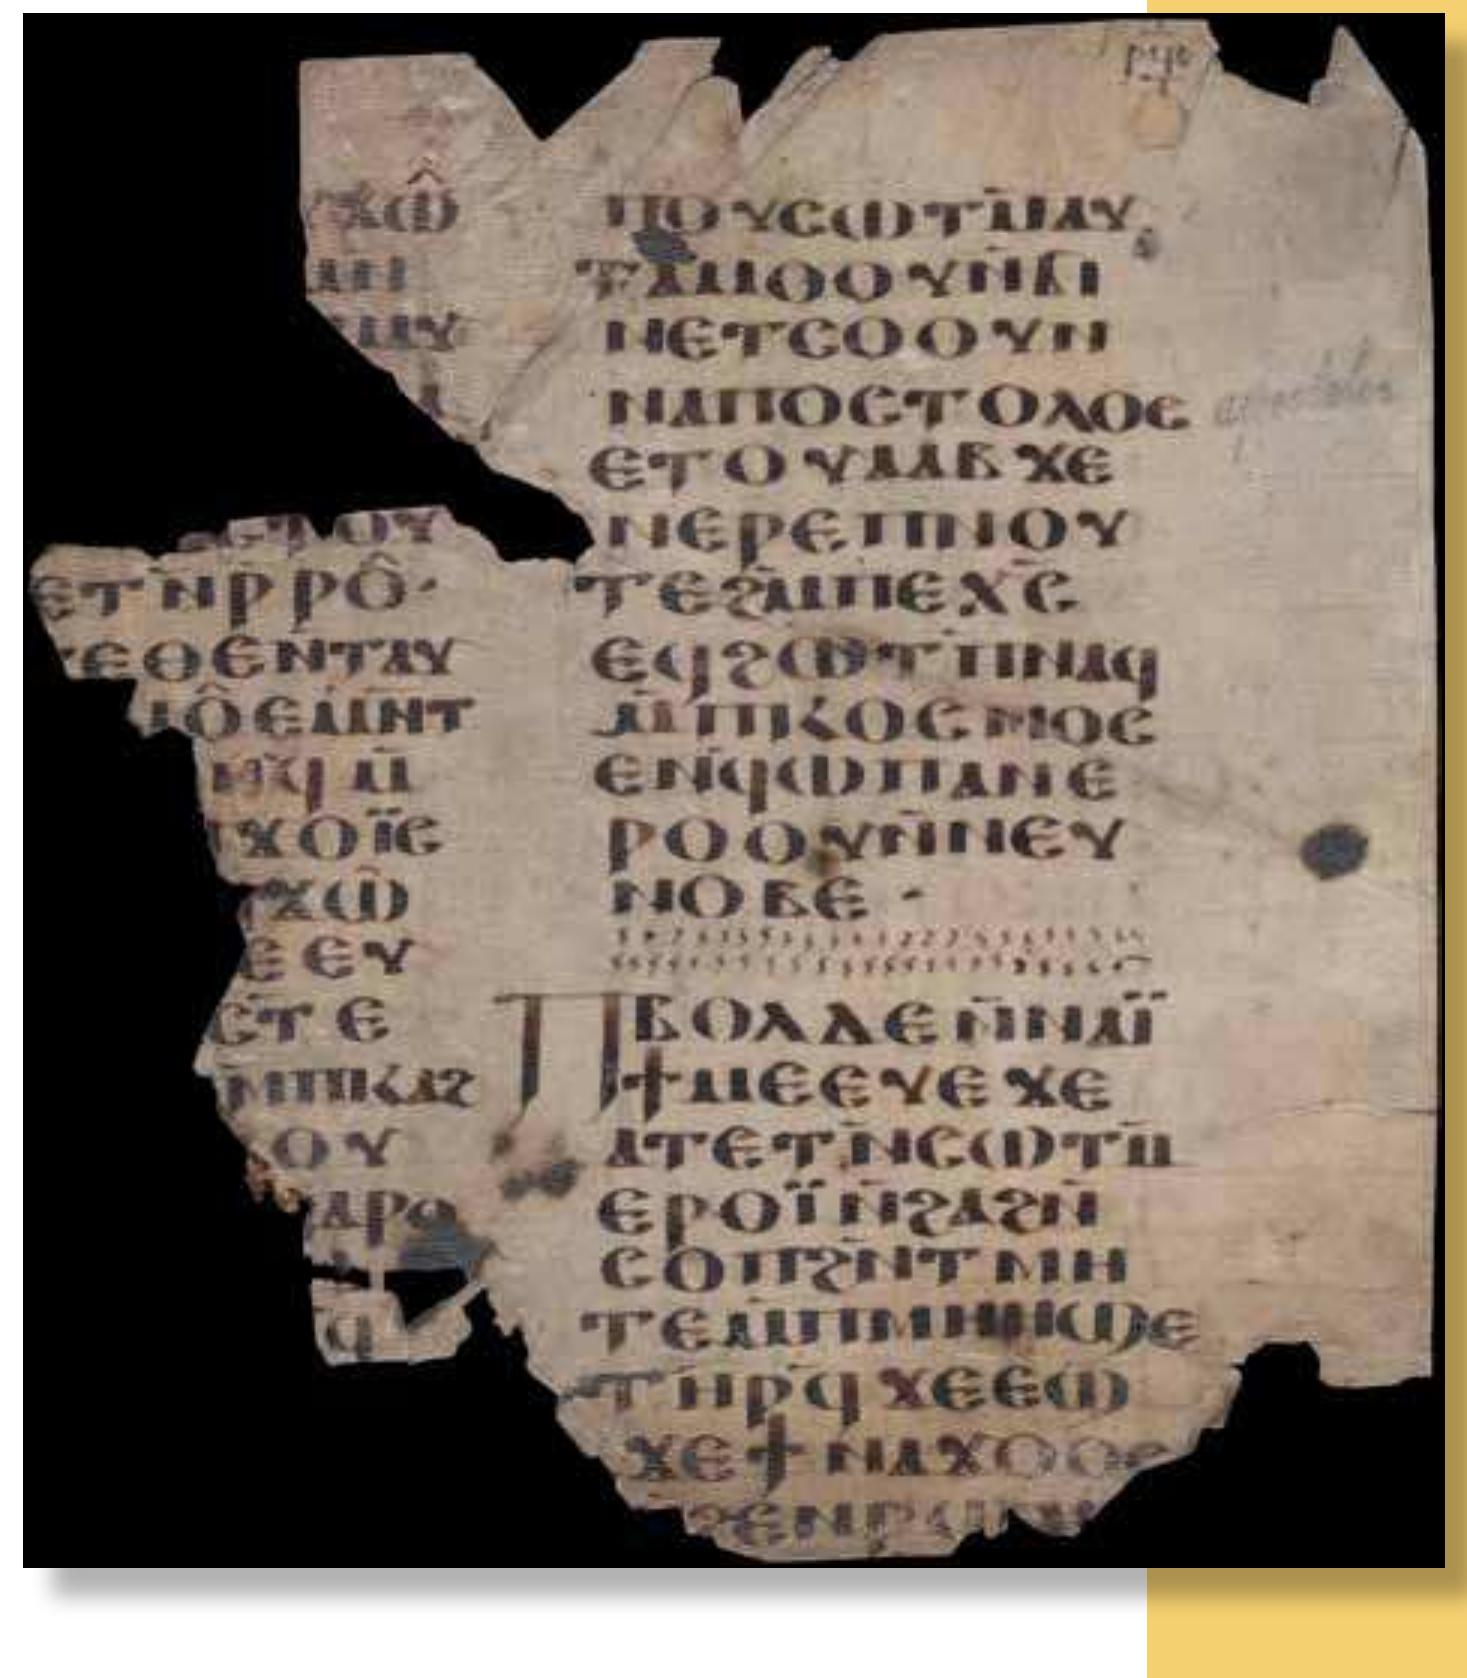 ϫⲱ̂
ⲁⲛ
ⲙⲁⲩ
ⲥⲧⲟⲩ
ⲉⲧⲛ̄ⲣ̄ⲣⲟ̂·
ⲉⲑⲉⲛⲧⲁⲩ
ⲟ̂ⲉⲙⲛ̄ⲧ
ⲛϥ̄ ⲙ̄
ϫⲟⲓ̈ⲥ
ϫⲱ̂
ⲉⲉⲩ
ⲥⲧⲉ
ⲙⲡⲕⲁϩ
ⲟⲩ
ⲁⲣⲟ
ϥ
ⲡⲟⲩⲥⲱⲧⲙ̄ⲙⲁⲩ
ⲧⲁⲙⲟⲟⲩⲛ̄ϭⲓ
ⲛⲉⲧⲥⲟⲟⲩⲛ
ⲛⲁⲡⲟⲥⲧⲟⲗⲟⲥ
ⲉⲧⲟⲩⲁⲁⲃ ϫⲉ
ⲛⲉⲣⲉⲡⲛⲟⲩ
ⲧⲉϩⲙ̄ⲡⲉⲭ̄ⲥ̄
ⲉϥϩⲱⲧⲡ̄ⲛⲁϥ
ⲙ̄ⲡⲕⲟⲥⲙⲟⲥ
ⲉⲛϥ̄ⲱⲡⲁⲛⲉ
ⲣⲟⲟⲩⲛ̄ⲛⲉⲩ
ⲛⲟⲃⲉ·
ⲡⲃⲟⲗⲇⲉⲛ̄ⲛⲁⲓ̈
ϯⲙⲉⲉⲩⲉ ϫⲉ
ⲁⲧⲉⲧⲛ̄ⲥⲱⲧⲙ̄
ⲉⲣⲟⲓ̈ⲛ̄ϩⲁϩⲛ̄
ⲥⲟⲡϩⲛ̄ⲧⲙⲏ
ⲧⲉⲙ̄ⲡⲙⲏⲏϣⲉ
ⲧⲏⲣϥ̄ ϫⲉⲉⲱ
ϫⲉϯⲛⲁϫⲟⲟⲥ